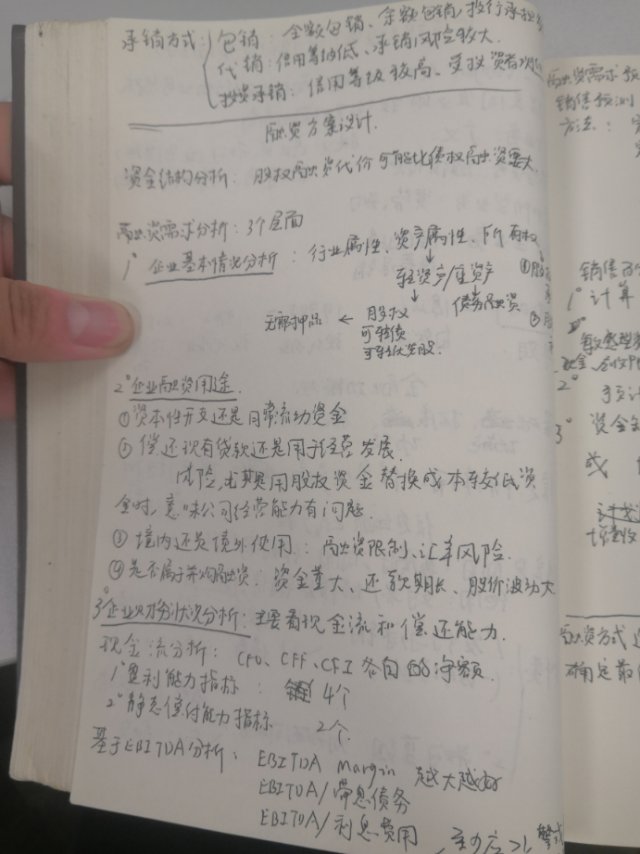 承销方式:
包销: 全额包销、余额包销, 投行承担
代销: 信用等级低、承销风险较大.
投资承销: 信用等级较高、受投资者欢迎
融资方案设计.
资金结构分析: 股权融资代价可能比债权融资要大
融资需求分析: 3个层面
1° 企业基本情况分析: 行业属性、资产属性、所有权
轻资产/重资产
无抵押品 ← 股权 债务融资
可转债
可转优先股.
2° 企业融资用途.
① 资本性开支还是日常流动资金
② 偿还现有贷款还是用于经营发展.
风险, 尤其用股权资金替换成本较低资
金时, 意味公司经营能力有问题.
③ 境内还是境外使用: 融资限制、汇率风险.
④ 是否属于并购融资: 资金量大、还款期长、股价波动大
3° 企业财务状况分析: 主要看现金流和偿还能力.
现金流分析: CFO、CFF、CFI各自的净额.
1° 盈利能力指标: 4个
2° 静态偿付能力指标 2个.
基于EBITDA分析: EBITDA Margin 越大越好
EBITDA/带息债务
EBITDA/利息费用
融资需求预
销售预测
方法:
销售百
1° 计算
敏感型
现金、
2° 预计
3° 资金
或
融资方式
确定最